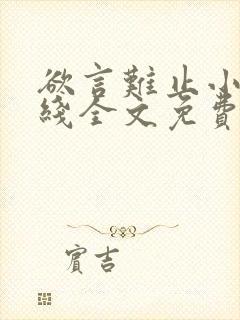 欲言難止小
綫全文免費
實吉